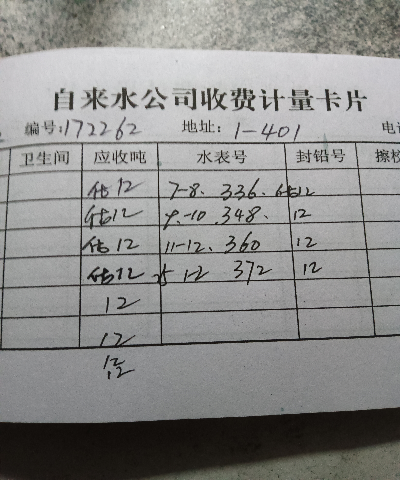 自来水公司收费计量卡片
编号:172262 地址: 1-401 电话
卫生间 应收吨 水表号 封铅号 擦校
估12 7-8. 336. 估12
估12 9-10. 348. 12
估12 11-12. 360 12
估12 25 1-2 372 12
12
12
12